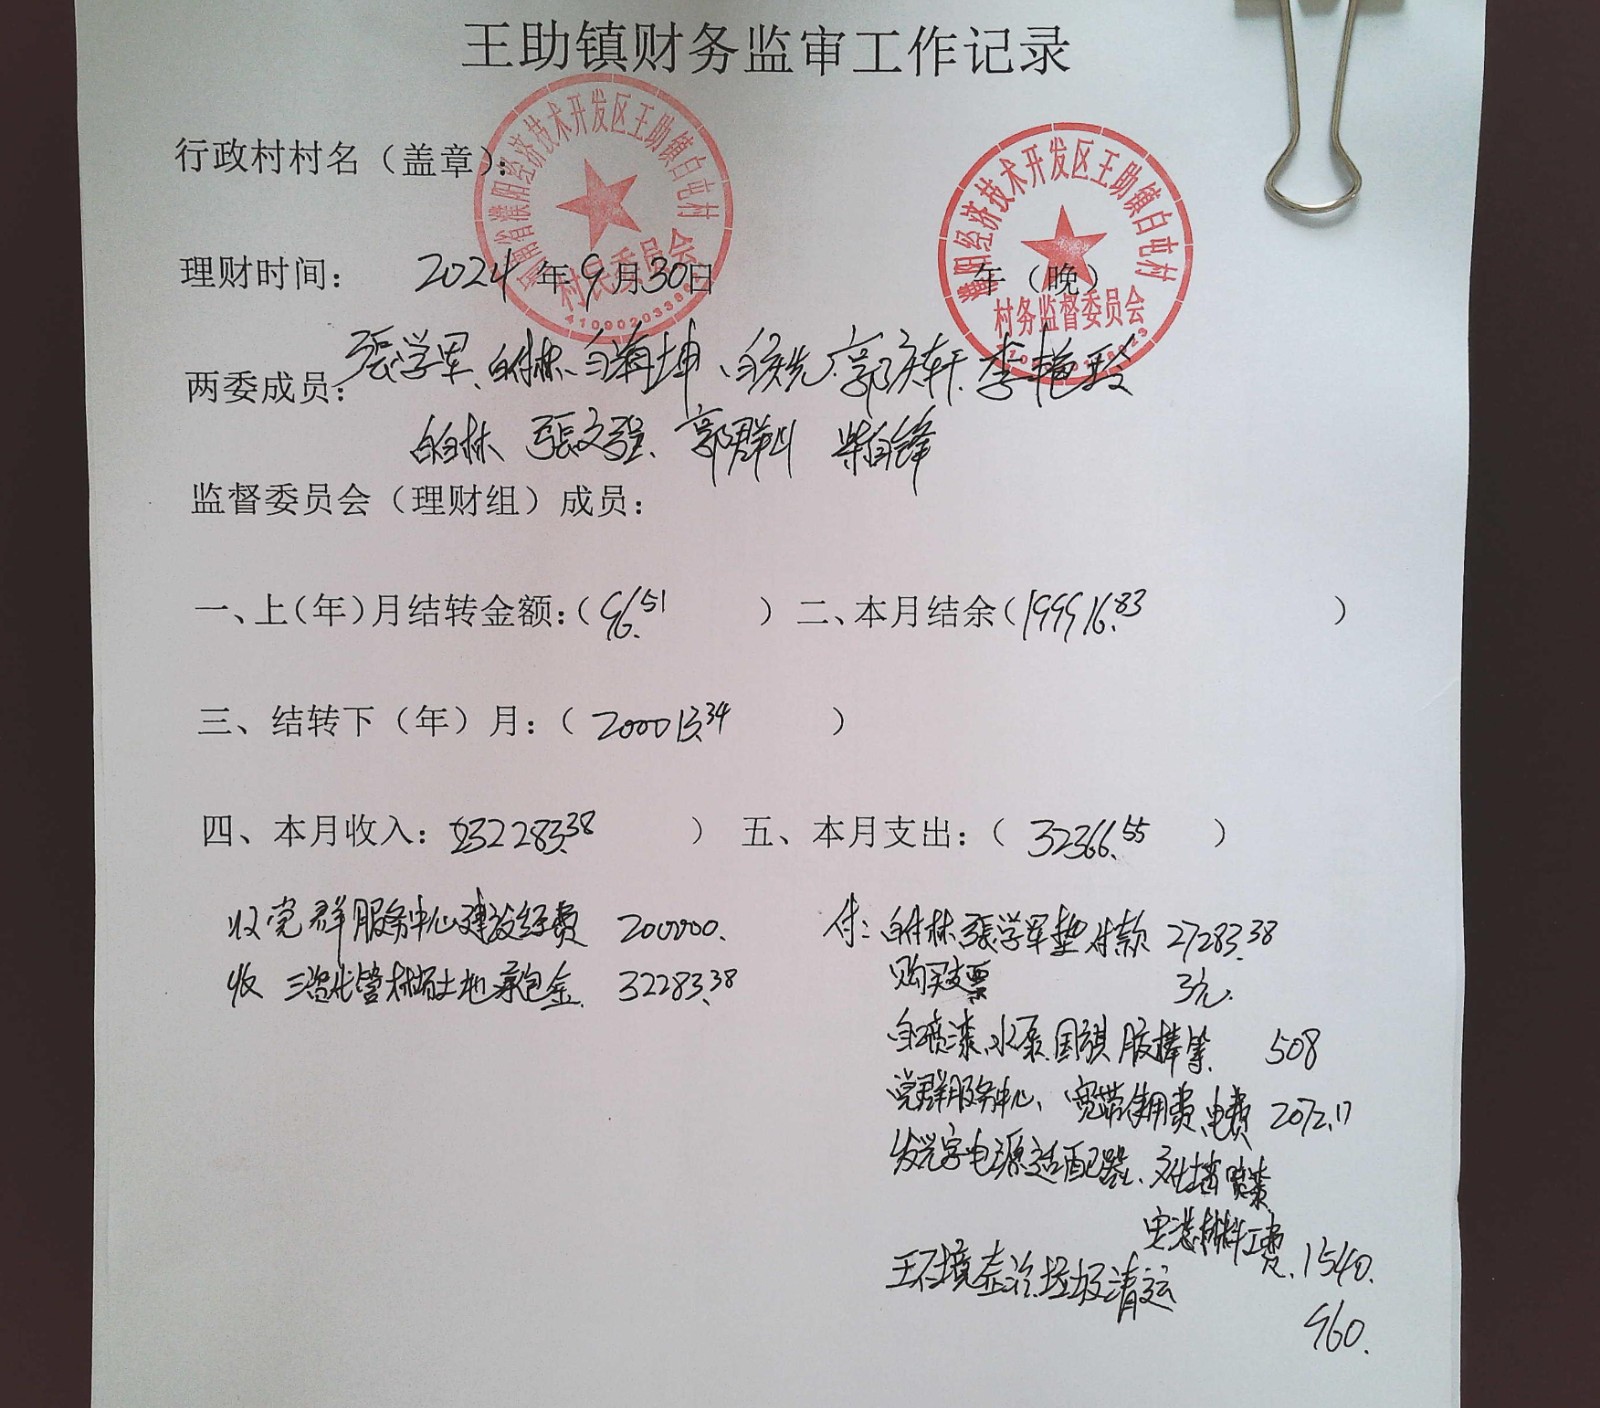 王助镇财务监审工作记录
行政村村名（盖章）：
河南省濮阳经济技术开发区王助镇白屯村
村民委员会
濮阳经济技术开发区王助镇白屯村
村务监督委员会
理财时间： 2024 年 9 月 30 日 午（晚）
两委成员： 張学军、白付林、白海坤、白庆先、郭庆轩、李艳玲
張文强、郭群
监督委员会（理财组）成员：
一、上（年）月结转金额：（ 96.51 ） 二、本月结余（ 199916.83 ）
三、结转下（年）月：（ 200013.34 ）
四、本月收入： 232283.38 ） 五、本月支出：（ 32366.55 ）
收党群服务中心建设经费 200000.
收 三资代管林场土地承包金 32283.38
付：白付林 張学军垫付款 27283.38
购买支票 3元.
自喷漆、水泵、国旗 胶棒等 508
党群服务中心、宽带使用费、电费 2072.17
发光字电源适配器、文化墙喷漆
安装材料工费、1540.
环境整治、垃圾清运
960.